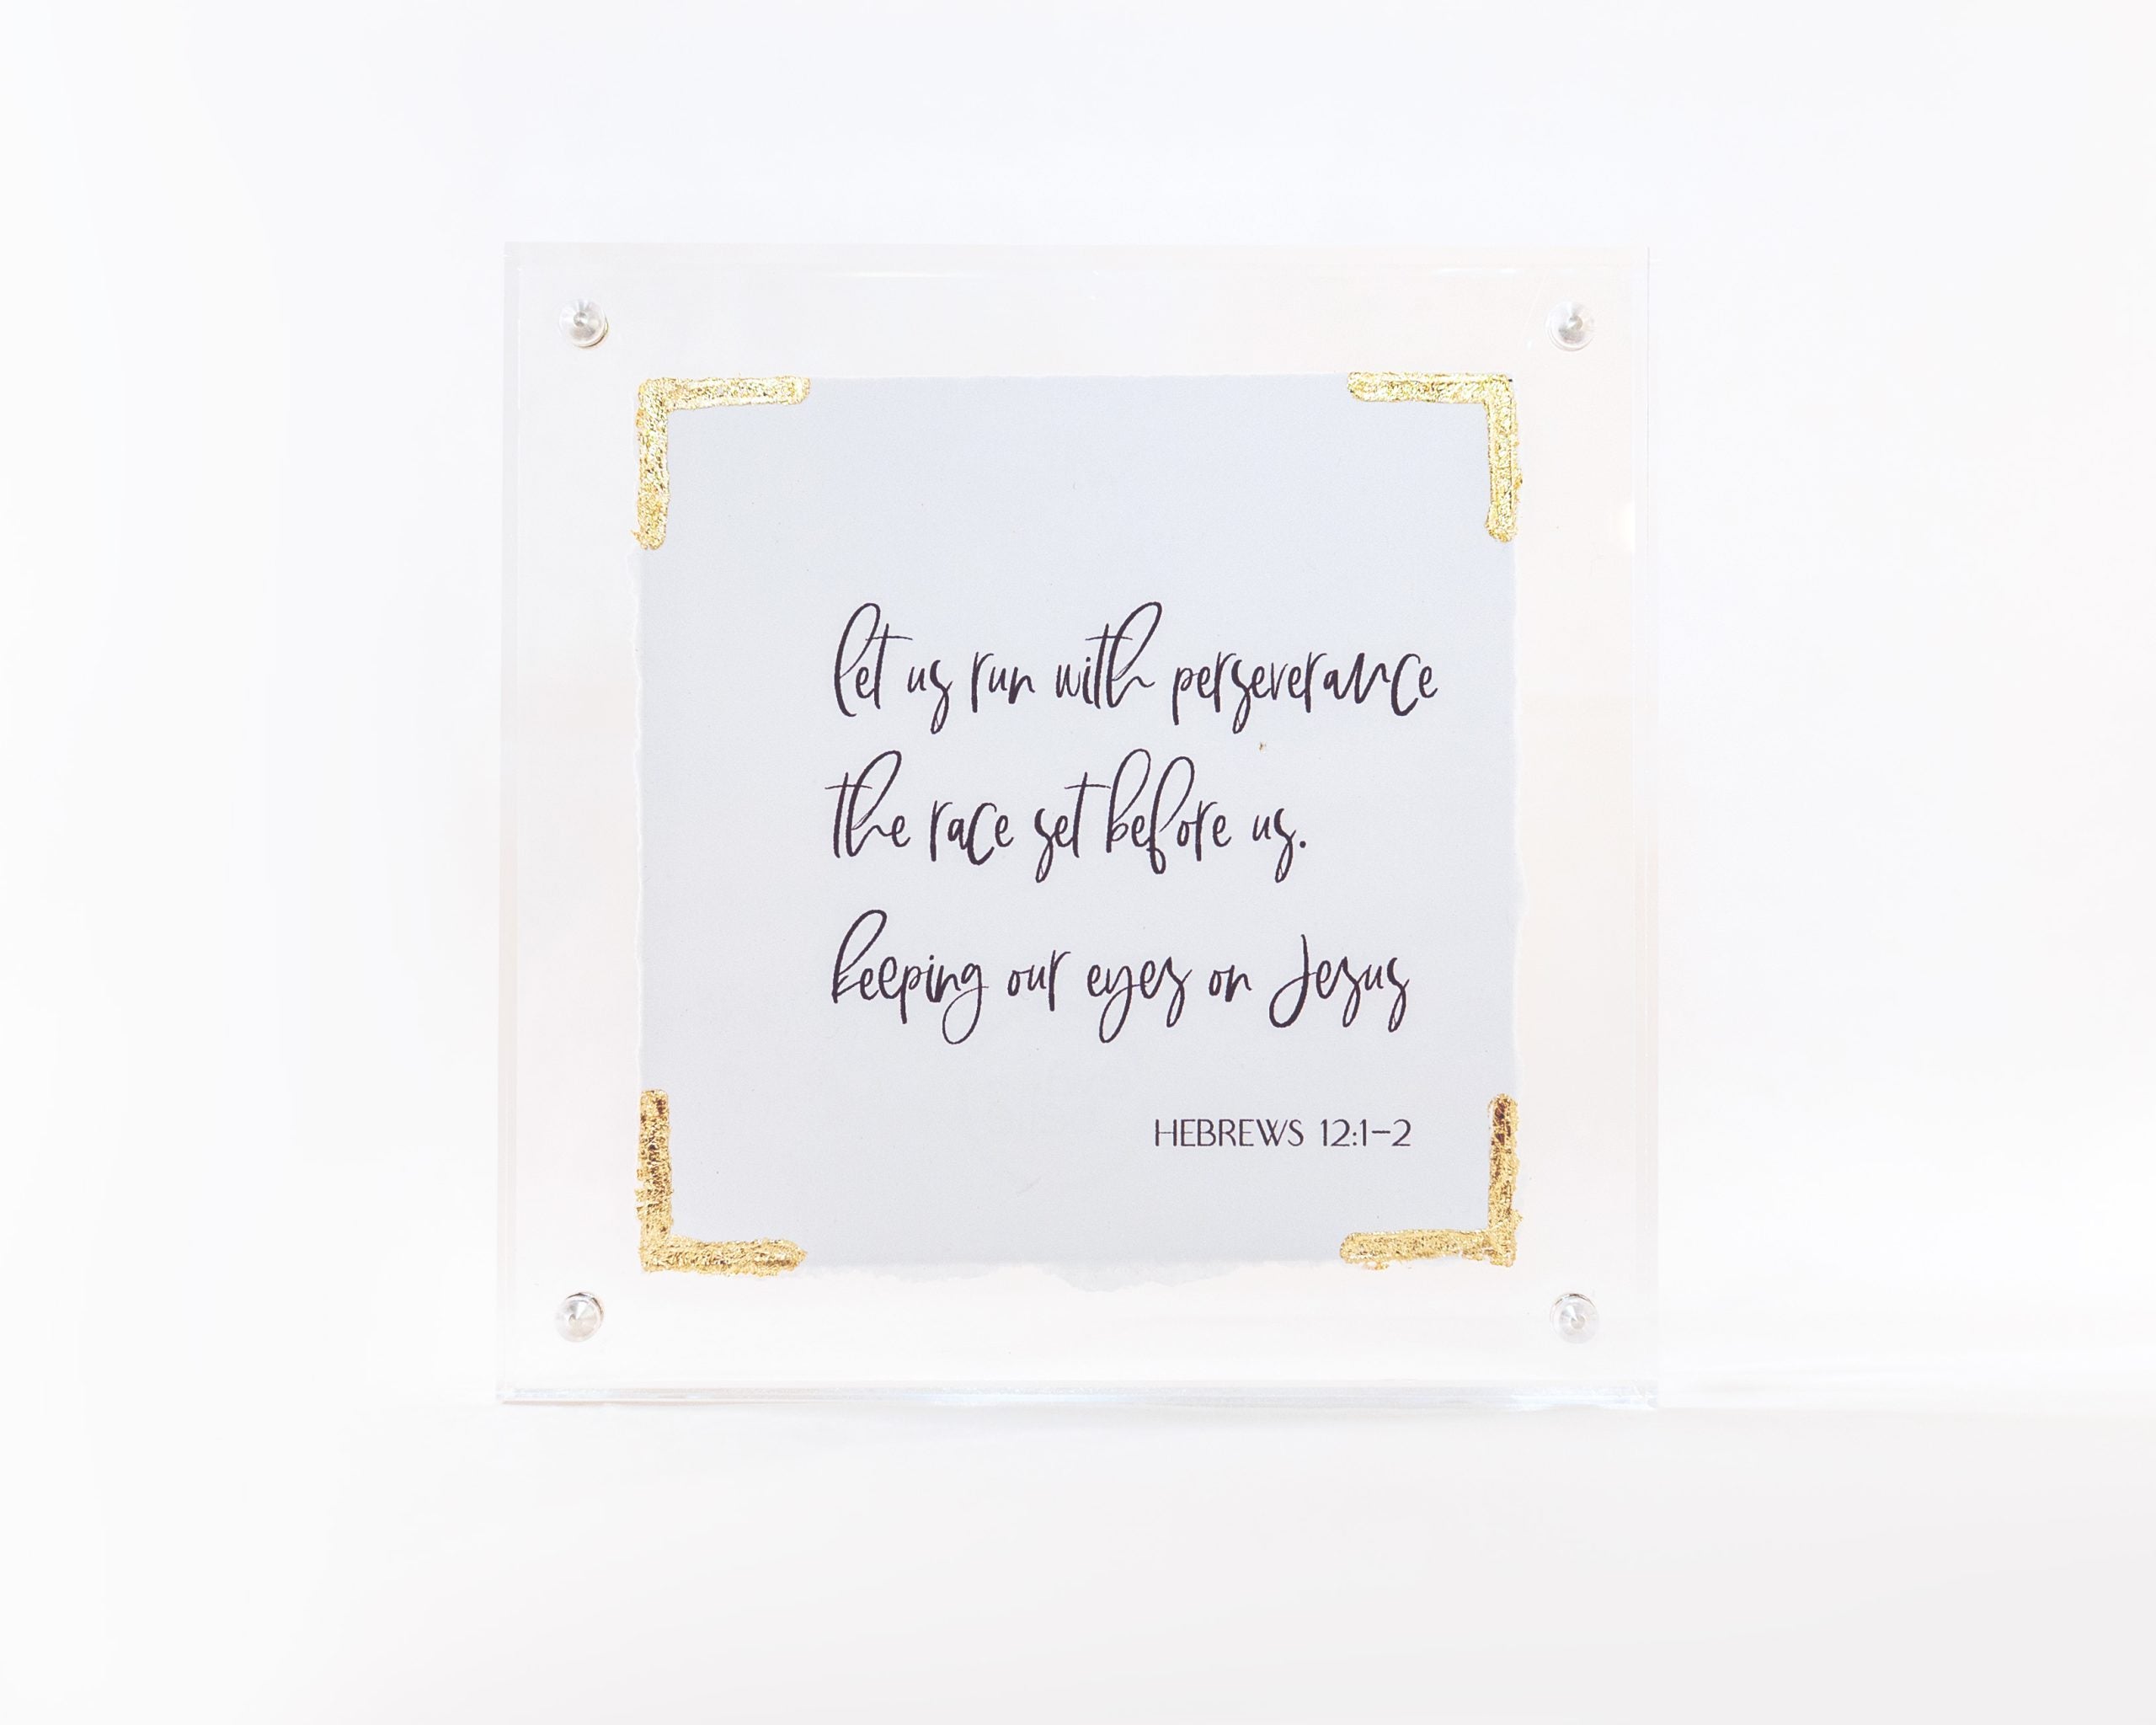 let us run with perseverance
the race set before us.
keeping our eyes on Jesus
HEBREWS 12:1–2